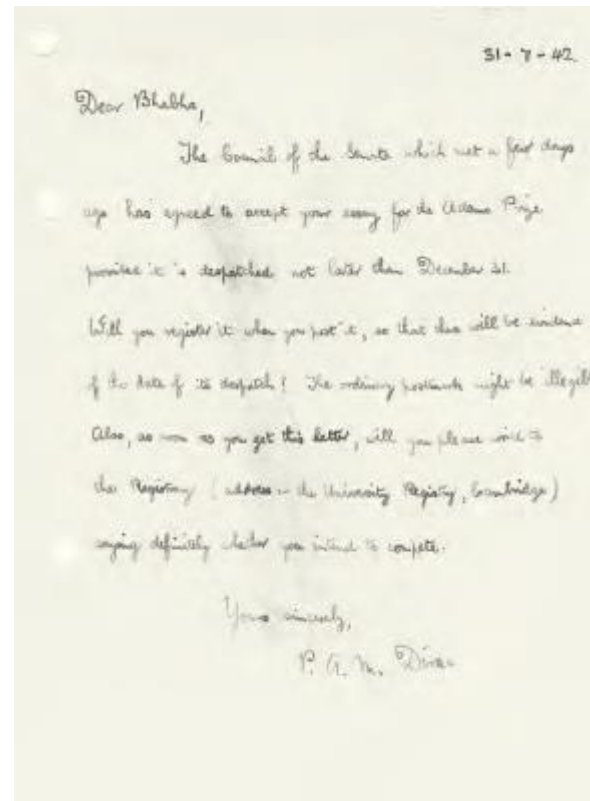 31-7-42
Dear Bhabha,
The Council of the Senate which met a few days
ago has agreed to accept your essay for the Adams Prize
provided it is despatched not later than December 31.
Will you register it when you post it, so that there will be evidence
of the date of its despatch? The ordinary postmark might be illegible
Also, as soon as you get this letter, will you please write to
the Registrary (address - the University Registry, Cambridge)
saying definitely whether you intend to compete.
Yours sincerely,
P. A. M. Dirac